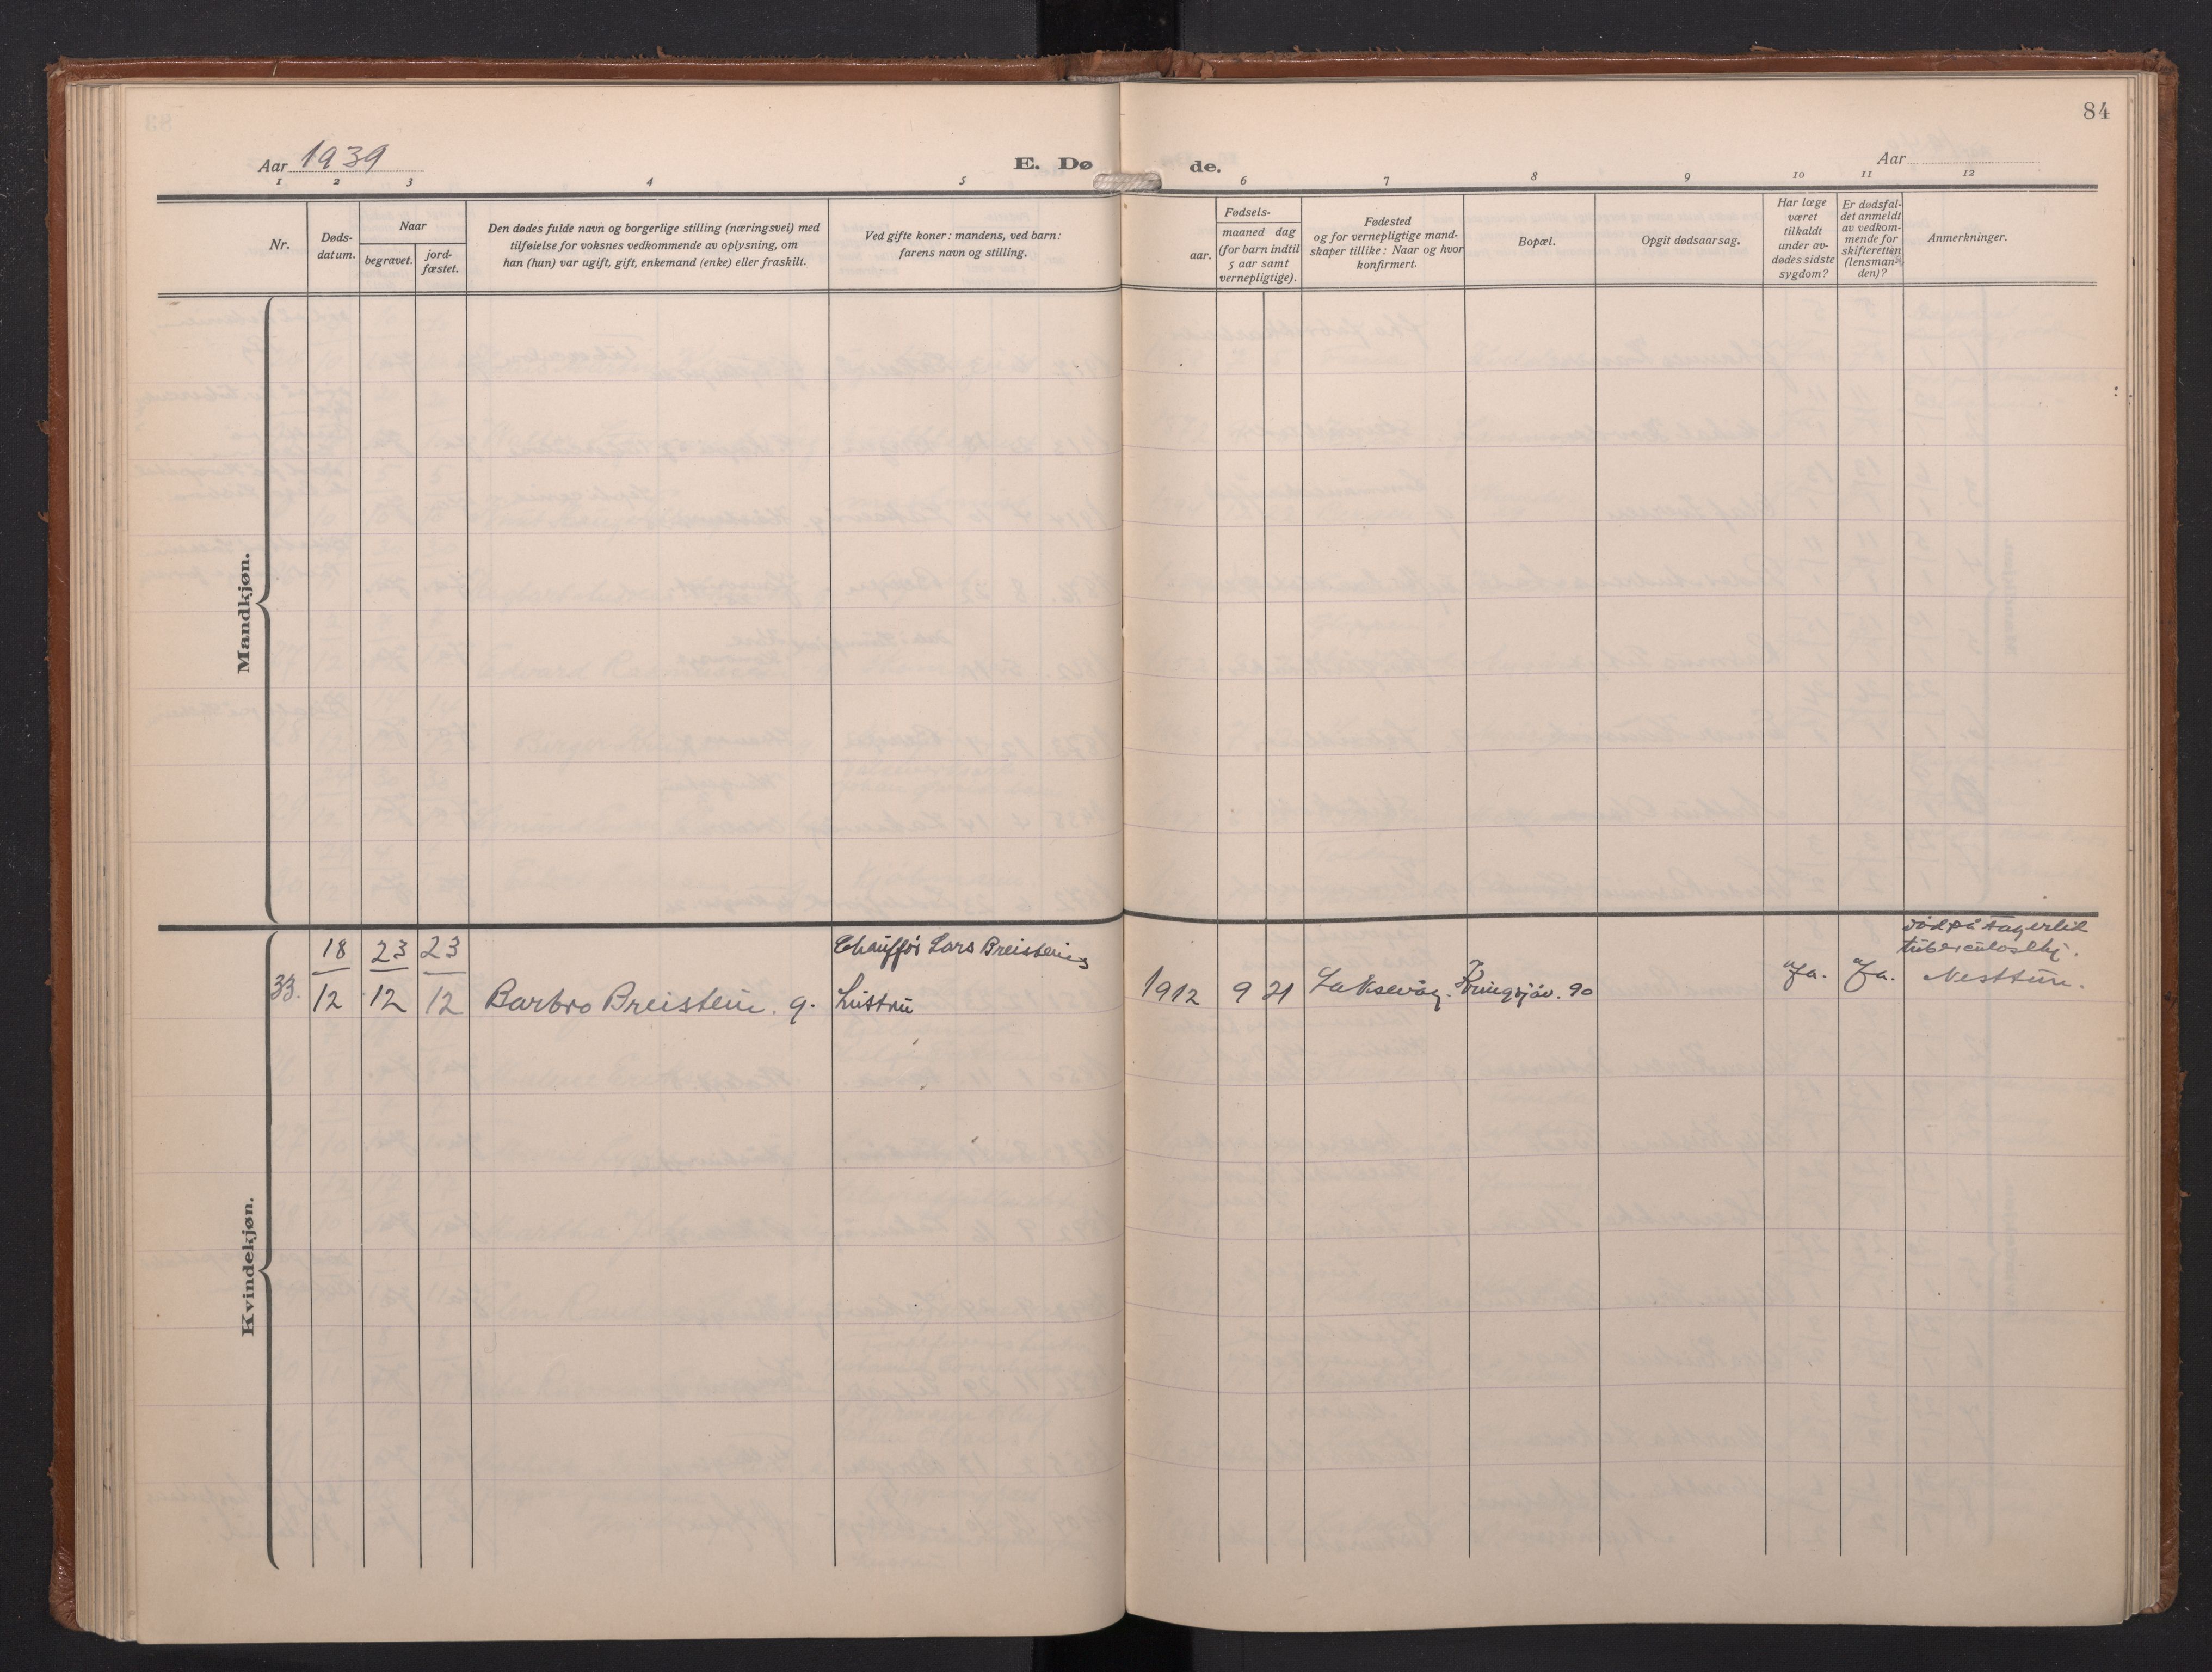 84
Aar 1939
E. Dø
de.
Aar
1 2 3 4 5 6 7 8 9 10 11 12
Nr.
Døds-
datum.
Naar
begravet.
jord-
fæstet.
Den dødes fulde navn og borgerlige stilling (næringsvei) med
tilføielse for voksnes vedkommende av oplysning, om
han (hun) var ugift, gift, enkemand (enke) eller fraskilt.
Ved gifte koner: mandens, ved barn:
farens navn og stilling.
aar.
Fødsels-
maaned dag
(for barn indtil
5 aar samt
vernepligtige).
Fødested
og for vernepligtige mand-
skaper tillike: Naar og hvor
konfirmert.
Bopæl.
Opgit dødsaarsag.
Har læge
været
tilkaldt
under av-
dødes sidste
sygdom?
Er dødsfal-
det anmeldt
av vedkom-
mende for
skifteretten
(lensman-
den)?
Anmerkninger.
Mandkjøn.
Kvindekjøn.
18 23 23 Chauffør Lars Breistein's
33. 12 12 12 Barbro Breistein. g. hustru
1912 9 21 Laksevåg. 90 Ja. Ja.
død på
Nesttun.